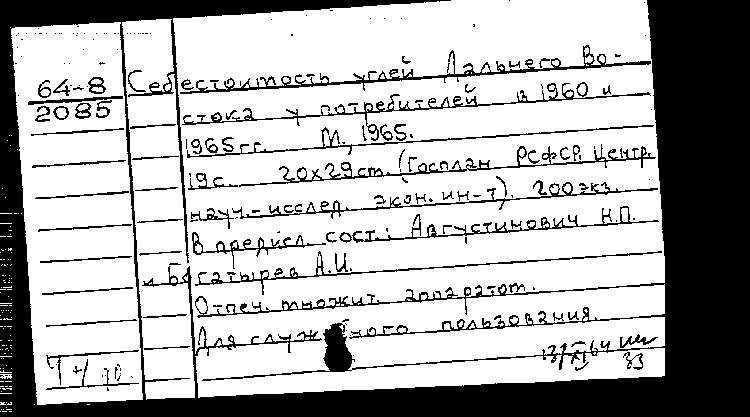 64-8
2085
Себестоимость углей Дальнего Во-
стока у потребителей в 1960 и
1965гг. М., 1965.
19с. 20х29ст. (Госплан РСФСР. Центр.
науч.-исслед. экон. ин-т). 200экз.
В предисл. сост.: Августинович Н.П.
и Богатырев А.И.
Отпеч. множит. аппаратом.
Для служебного пользования.